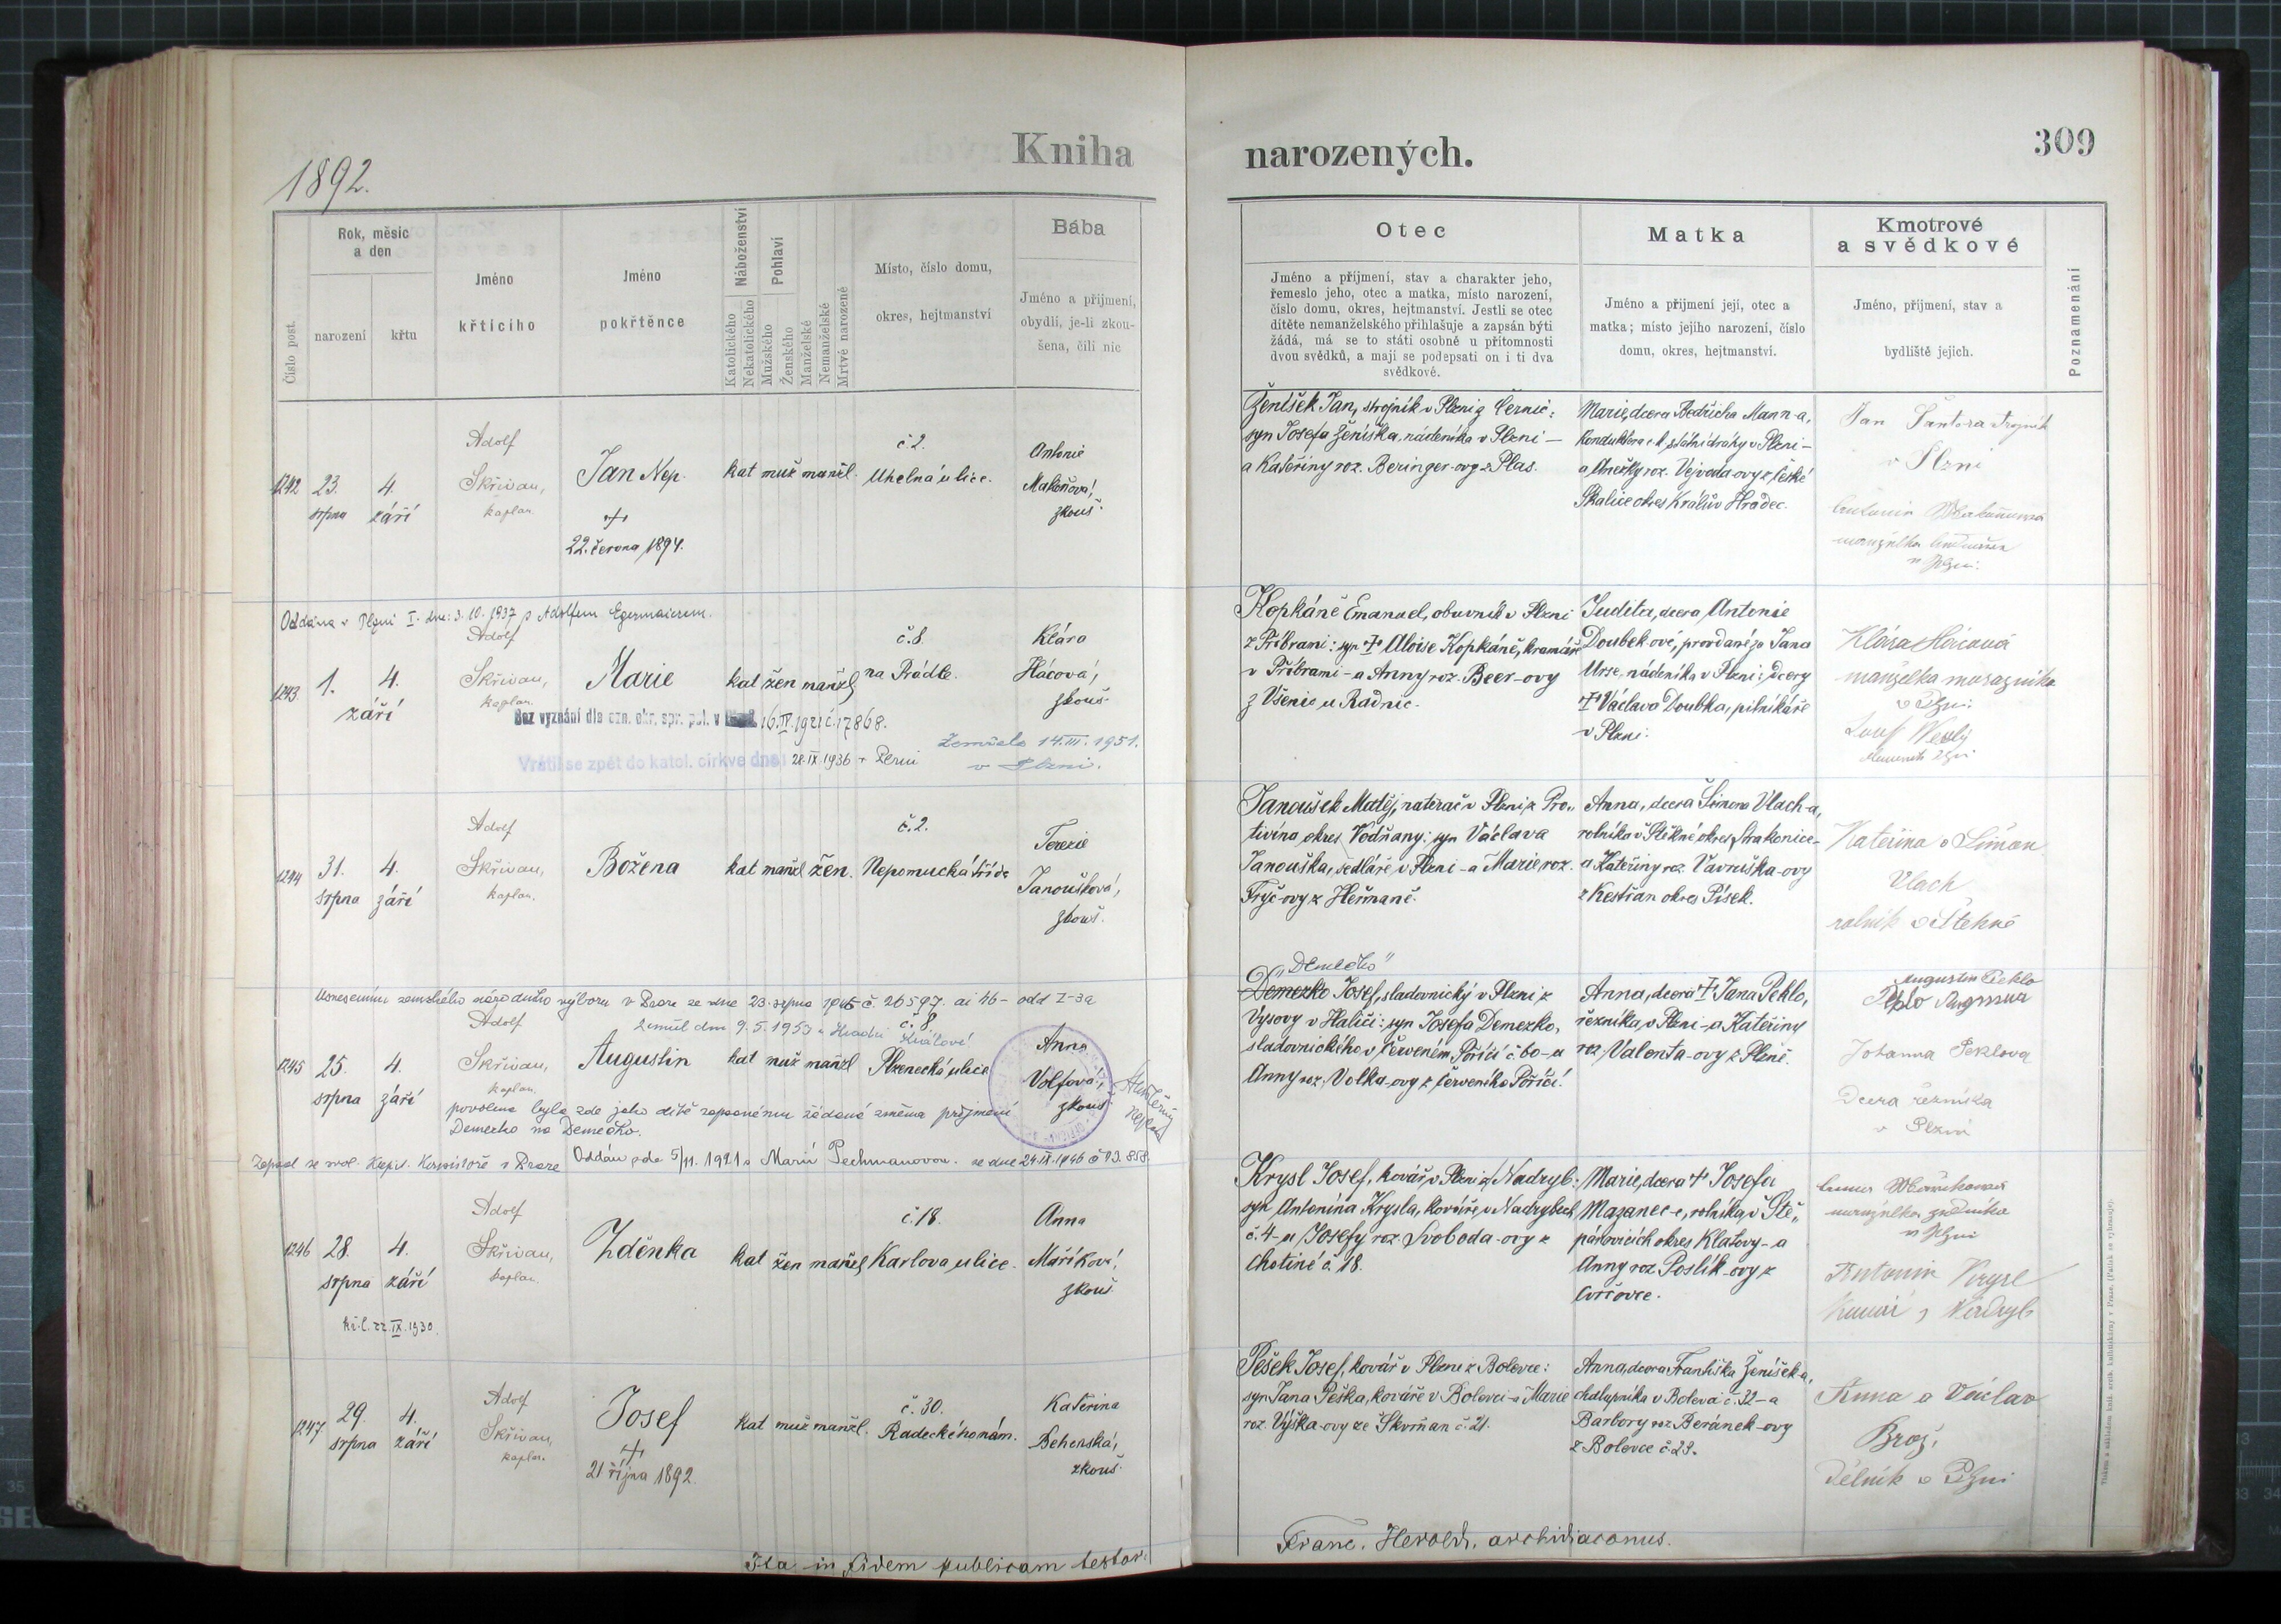 1892.
Kniha
narozených.
309
Číslo post.
Rok, měsíc
a den
narození
křtu
Jméno
křtícího
Jméno
pokřtěnce
Náboženství
Katolického
Nekatolického
Pohlaví
Mužského
Ženského
Manželské
Nemanželské
Mrtvě narozené
Místo, číslo domu,
okres, hejtmanství
Bába
Jméno a příjmení,
obydlí, je-li zkou-
šena, čili nic
Otec
Jméno a příjmení, stav a charakter jeho,
řemeslo jeho, otec a matka, místo narození,
číslo domu, okres, hejtmanství. Jestli se otec
dítěte nemanželského přihlašuje a zapsán býti
žádá, má se to státi osobně u přítomnosti
dvou svědků, a mají se podepsati on i ti dva
svědkové.
Matka
Jméno a příjmení její, otec a
matka; místo jejího narození, číslo
domu, okres, hejtmanství.
Kmotrové
a svědkové
Jméno, příjmení, stav a
bydliště jejich.
Poznamenání
1242
23.
srpna
4.
září
Adolf
Skřivan,
kaplan.
Jan Nep.
+
22. června 1894.
kat muž manžl.
č 2.
Uhelná ulice.
Antonie
Makoňová,
zkouš.
Ženíšek Jan, strojník v Plzni z Černic:
syn Josefa Ženíška, nádeníka v Plzni -
a Kateřiny roz. Beringer-ovy z Plas.
Marie, dcera Bedřicha Mann-a,
konduktéra c. k. státní dráhy v Plzni -
a Anežky roz. Vejvoda-ovy z České
Skalice okres Králův Hradec.
Jan Šantora strojník
v Plzni
manželka
v Plzni.
Oddána v Plzni I. dne: 3. 10. 1937 s Adolfem Egermaierem.
1243
1.
září
4.
Adolf
Skřivan,
kaplan.
Marie
kat žen manžl
č. 8
na Prádle.
Klára
Hácová,
zkouš.
Bez vyznání dle ozn. okr. spr. pol. v 16. IV. 1921 č. 17868.
Vrátil se zpět do katol. církve dne 28. IX. 1936 v Plzni
Zemřela 14. III. 1951.
v Plzni.
Kopkáně Emanuel, obuvník v Plzni
z Příbrami: syn + Aloise Kopkáně, kramáře
v Příbrami - a Anny roz. Beer-ovy
z Všenic u Radnic.
Judita, dcera Antonie
Doubek-ové, provdané za Jana
Urse, nádeníka v Plzni; dcery
+ Václava Doubka, pilníkáře
v Plzni.
Klára Hácová
manželka
v Plzni.
Josef Veselý
1244
31.
srpna
4.
září
Adolf
Skřivan,
kaplan.
Božena
kat manžl žen.
č. 2.
Nepomucká třída
Terezie
Janoušková,
zkouš.
Janoušek Matěj, natěrač v Plzni z Pro-
tivína okres Vodňany: syn Václava
Janouška, sedláře v Plzni - a Marie roz.
Fryč-ovy z Heřmaně.
Anna, dcera Šimona Vlach-a,
rolníka v Štěkně okres Strakonice -
a Kateřiny roz. Vavruška-ovy
z Kestřan okres Písek.
Kateřina a Šimon
Vlach
rolník v Štěkně
Usnesením zemského národního výboru v Praze ze dne 23. srpna 1945 č. 26597. ai 46 - odd I-3a
1245
25.
srpna
4.
září
Adolf
Skřivan,
kaplan.
Zemřel dne 9. 5. 1953 v Hradci Králové
Augustin
kat muž manžl
č. 8
Plzenecká ulice
Anna
Volfová,
zkouš.
povolena byla zde jako dítě zapsanému žádaná změna příjmení
Demezko na Demečko.
Oddán zde 5/11. 1921 s Marií Pechmanovou.
ze dne 24. IX. 1946 č 93.858
"Demečko"
Demezko Josef, sladovnický v Plzni z
Vysovy v Haliči: syn Josefa Demezko,
sladovnického v Červeném Poříčí č 60 - a
Anny roz. Volka-ovy z Červeného Poříčí.
Anna, dcera + Jana Peklo,
řezníka v Plzni - a Kateřiny
roz. Valenta-ovy z Plzně.
Augustin Peklo
Johanna Peklova
Dcera řezníka
v Plzni
1246
28.
srpna
4.
září
22. IX. 1930.
Adolf
Skřivan,
kaplan.
Zděnka
kat žen manžel
č. 18.
Karlova ulice.
Anna
Maříkov.,
zkouš.
Krysl Josef, kovář v Plzni z Nadryb:
syn Antonína Krysla, kováře v Nadrybech
č. 4 - a Josefy roz. Svoboda-ovy z
Chotiné č. 18.
Marie, dcera + Josefa
Mazanec-e, rolníka v Ště-
pánovicích okres Klatovy - a
Anny roz. Poslík-ovy z
manželka zedníka
v Plzni
Antonín Krysl
1247
29.
srpna
4.
září
Adolf
Skřivan,
kaplan.
Josef
+
21 října 1892.
kat muž manžl.
č. 30.
Radeckého nám.
Kateřina
Behenská,
zkouš.
Pešek Josef, kovář v Plzni z Bolevce:
syn Jana Peška, kováře v Bolevci - a Marie
roz. Výška-ovy ze Skvrňan č. 21.
Anna, dcera Františka Ženíšek-a,
chalupníka v Bolevci č. 32 - a
Barbory roz. Beránek-ovy
z Bolevce č 29.
Anna a Václav
Brož,
Dělník v Plzni
Ita in fidem publicam testor:
Franc. Herold, archidiaconus.